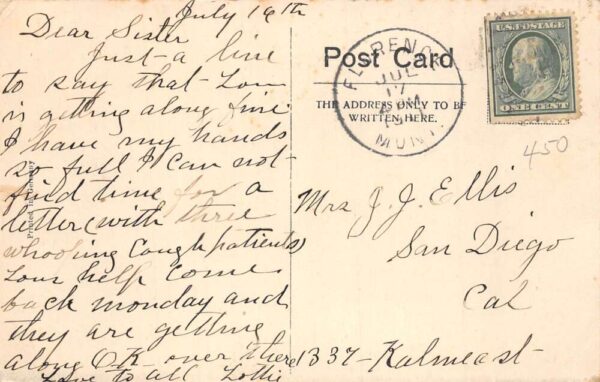 July 16th
Dear Sister
Just a line
to say that Lou
is getting along fine
I have my hands
so full I can not
find time for a
letter (with three
whooping Cough patients)
Lous help come
back monday and
they are getting
along OK over there
Love to all Lottie
Printed in Germany
Post Card
THE ADDRESS ONLY TO BE
WRITTEN HERE.
FLORENCE
JUL
17
MONT.
U.S. POSTAGE
ONE CENT
450
Mrs J. J. Ellis
San Diego
Cal
1337 - Kalmia st